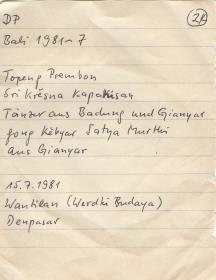 DP
24
Bali 1981-7
Topeng Prembon
Sri Krěsna Kapakisan
Tänzer aus Badung und Gianyar
gong Kěbyar Satya Murthi
aus Gianyar
15.7.1981
Wantilan (Werdhi Budaya)
Denpasar